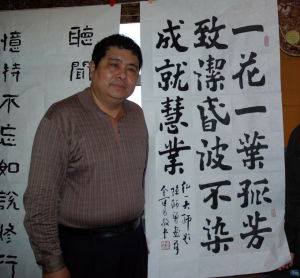 一花一葉孤芳
致潔昏波不染
成就慧業
聽聞
憶持不忘如說修行